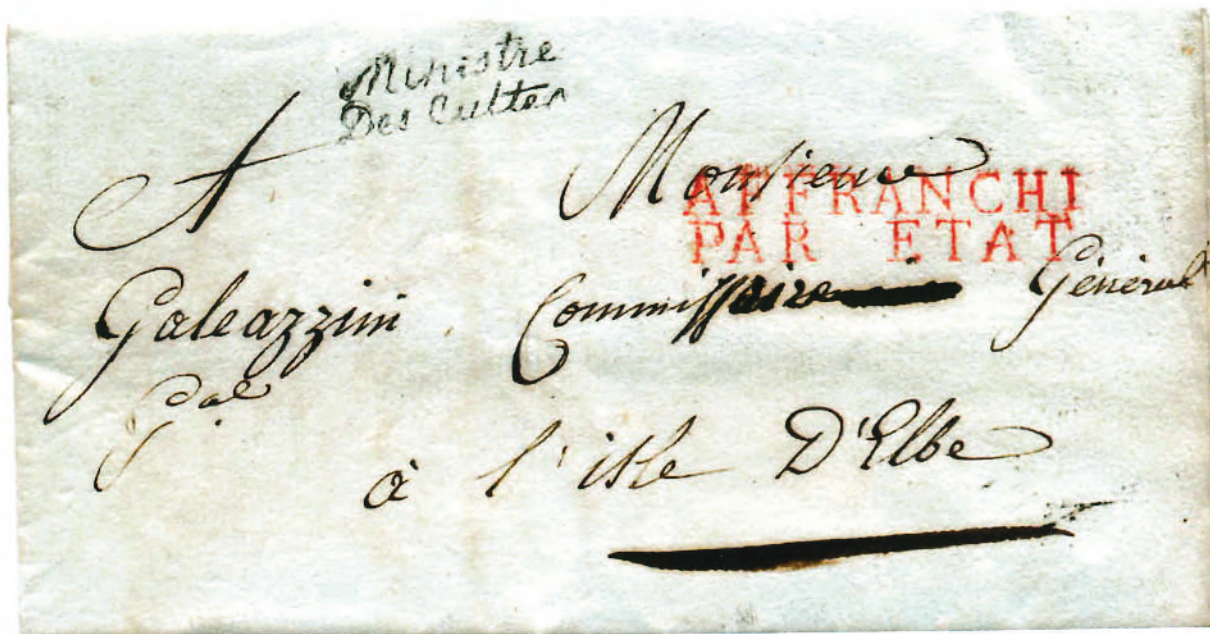 Ministre
Des Cultes
A Monsieur
AFFRANCHI
PAR ETAT
Galeazzini Commissaire Général
Gal
à l'isle D'Elbe